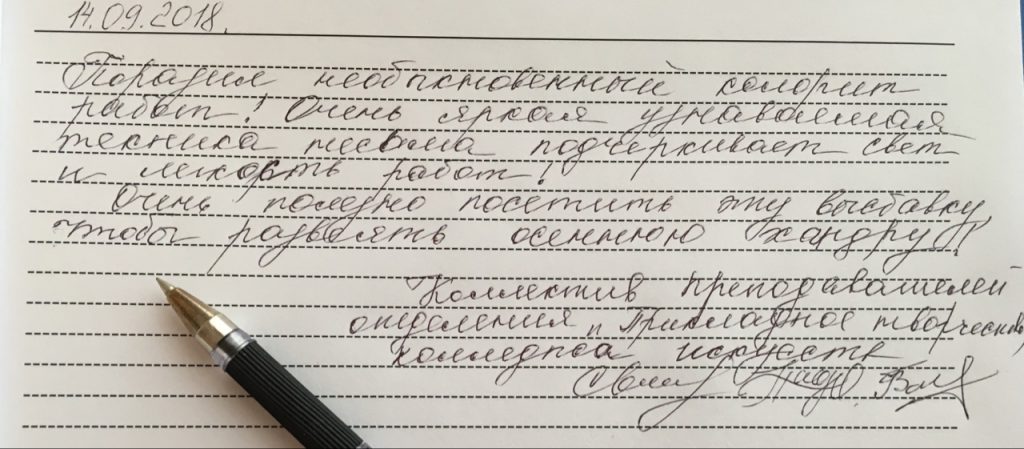 14.09.2018.
Поразил необыкновенный колорит
работ! Очень яркая узнаваемая
техника письма подчеркивает свет
и легкость работ!
Очень полезно посетить эту выставку,
чтобы развеять осеннюю хандру!
Коллектив преподавателей
отделения "Прикладное творчество"
колледжа искусств